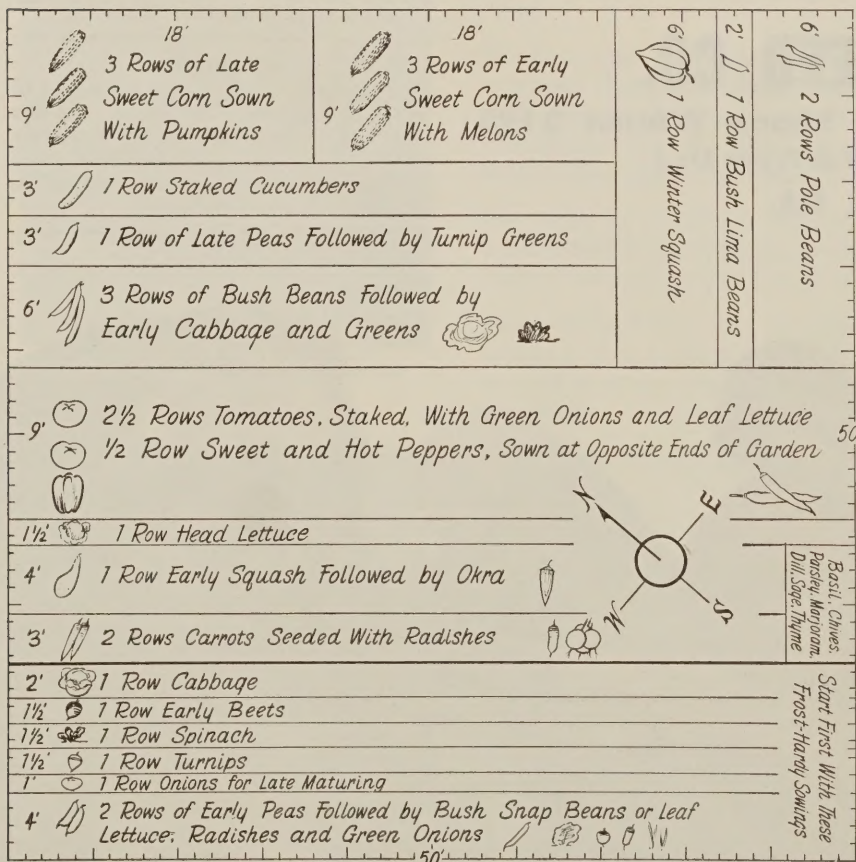 18'
3 Rows of Late
Sweet Corn Sown
9'
With Pumpkins
18'
3 Rows of Early
Sweet Corn Sown
9'
With Melons
6'
1 Row Winter Squash
2'
1 Row Bush Lima Beans
6'
2 Rows Pole Beans
3' 1 Row Staked Cucumbers
3' 1 Row of Late Peas Followed by Turnip Greens
6' 3 Rows of Bush Beans Followed by
Early Cabbage and Greens
9' 2½ Rows Tomatoes, Staked, With Green Onions and Leaf Lettuce
50
½ Row Sweet and Hot Peppers, Sown at Opposite Ends of Garden
N
E
S
W
1½' 1 Row Head Lettuce
4' 1 Row Early Squash Followed by Okra
3' 2 Rows Carrots Seeded With Radishes
Basil, Chives,
Parsley, Marjoram,
Dill, Sage, Thyme
2' 1 Row Cabbage
1½' 1 Row Early Beets
1½' 1 Row Spinach
1½' 1 Row Turnips
1' 1 Row Onions for Late Maturing
4' 2 Rows of Early Peas Followed by Bush Snap Beans or Leaf
Lettuce, Radishes and Green Onions
Start First With These
Frost-Hardy Sowings
50'